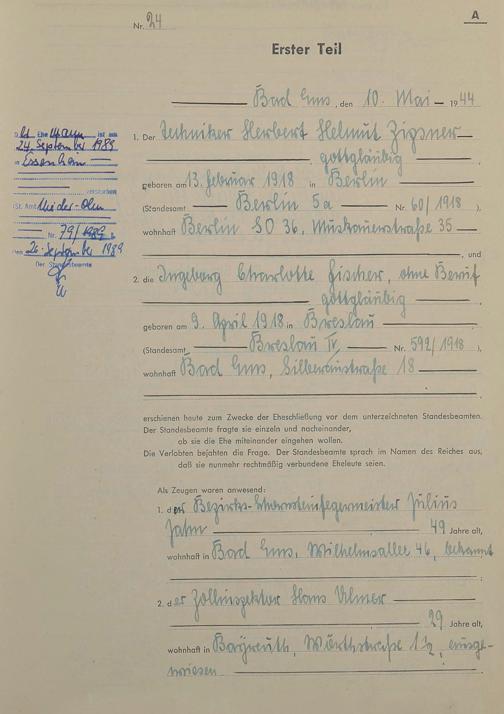 Nr. 24
A
Erster Teil
Bad Ems, den 10. Mai 1944
1. Der Techniker Herbert Helmut
gottgläubig
geboren am 13. Februar 1918 in Berlin
(Standesamt Berlin 5a Nr. 60/1918),
wohnhaft Berlin SO 36, Muskauerstraße 35
, und
2. die Ingeborg Charlotte Fischer, ohne Beruf
gottgläubig
geboren am 9. April 1918 in Breslau
(Standesamt Breslau IV Nr. 592/1918),
wohnhaft Bad Ems, Silberaustraße 18
erschienen heute zum Zwecke der Eheschließung vor dem unterzeichneten Standesbeamten.
Der Standesbeamte fragte sie einzeln und nacheinander,
ob sie die Ehe miteinander eingehen wollen.
Die Verlobten bejahten die Frage. Der Standesbeamte sprach im Namen des Reiches aus,
daß sie nunmehr rechtmäßig verbundene Eheleute seien.
Als Zeugen waren anwesend:
1. der Bezirks-Schornsteinfegermeister Julius
Jahn 49 Jahre alt,
wohnhaft in Bad Ems, Wilhelmsallee 46, bekannt
2. der Zollinspektor Hans Ulmer
29 Jahre alt,
wohnhaft in Bayreuth, Wörthstraße 1½, ausge-
wiesen
Ehemann ist am
24. September 1989
in Essenheim
verstorben
(St. Amt Nieder-Olm
Nr. 79/1989)
den 26. September 1989
Der Standesbeamte